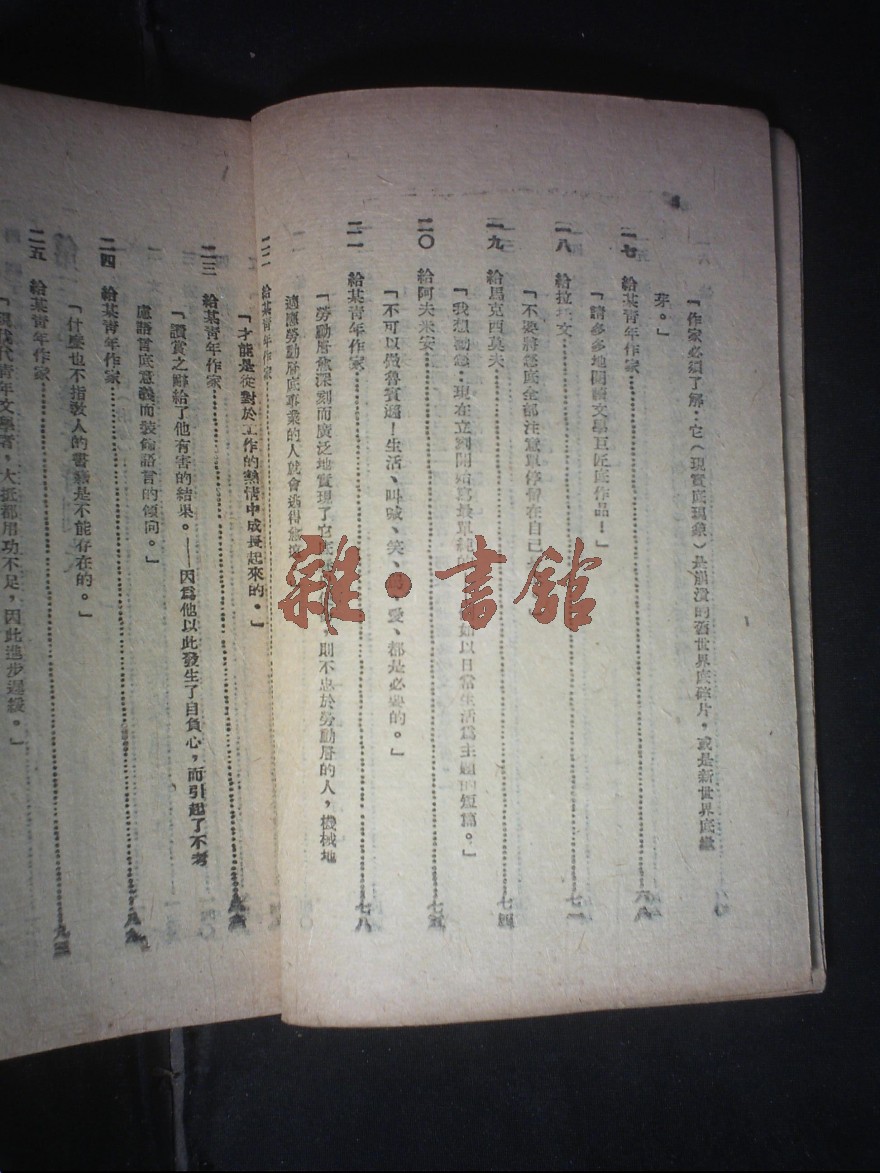 「作家必須了解：它（現實底現象）是崩潰的舊世界底碎片，或是新世界底嫩
芽。」
二七 給某青年作家 六八
「請多多地閱讀文學巨匠底作品！」
二八 給拉 文 七一
「不要將您底全部注意單停留在自己
二九 給馬克西莫夫 七四
「我想勸您：現在立刻開始寫最單純 以日常生活爲主題的短篇。」
二〇 給阿夫米安 七五
「不可以做魯賓遜！生活、叫喊、笑、 愛、都是必要的。」
二一 給某青年作家 七八
「勞動層愈深刻而廣泛地實現了它底 則不忠於勞動層的人，機械地
適應勞動層底專業的人就會逃得愈
二二 給某青年作家
「才能是從對於工作的熱情中成長起來的。」
二三 給某青年作家
「讚賞之辭給了他有害的結果。——因爲他以此發生了自負心，而引起了不考
慮語言底意義而裝飾語言的傾向。」
二四 給某青年作家
「什麼也不指教人的書籍是不能存在的。」
二五 給某青年作家 九三
「現代青年文學者，大抵都用功不足，因此進步遲緩。」
雜·書館